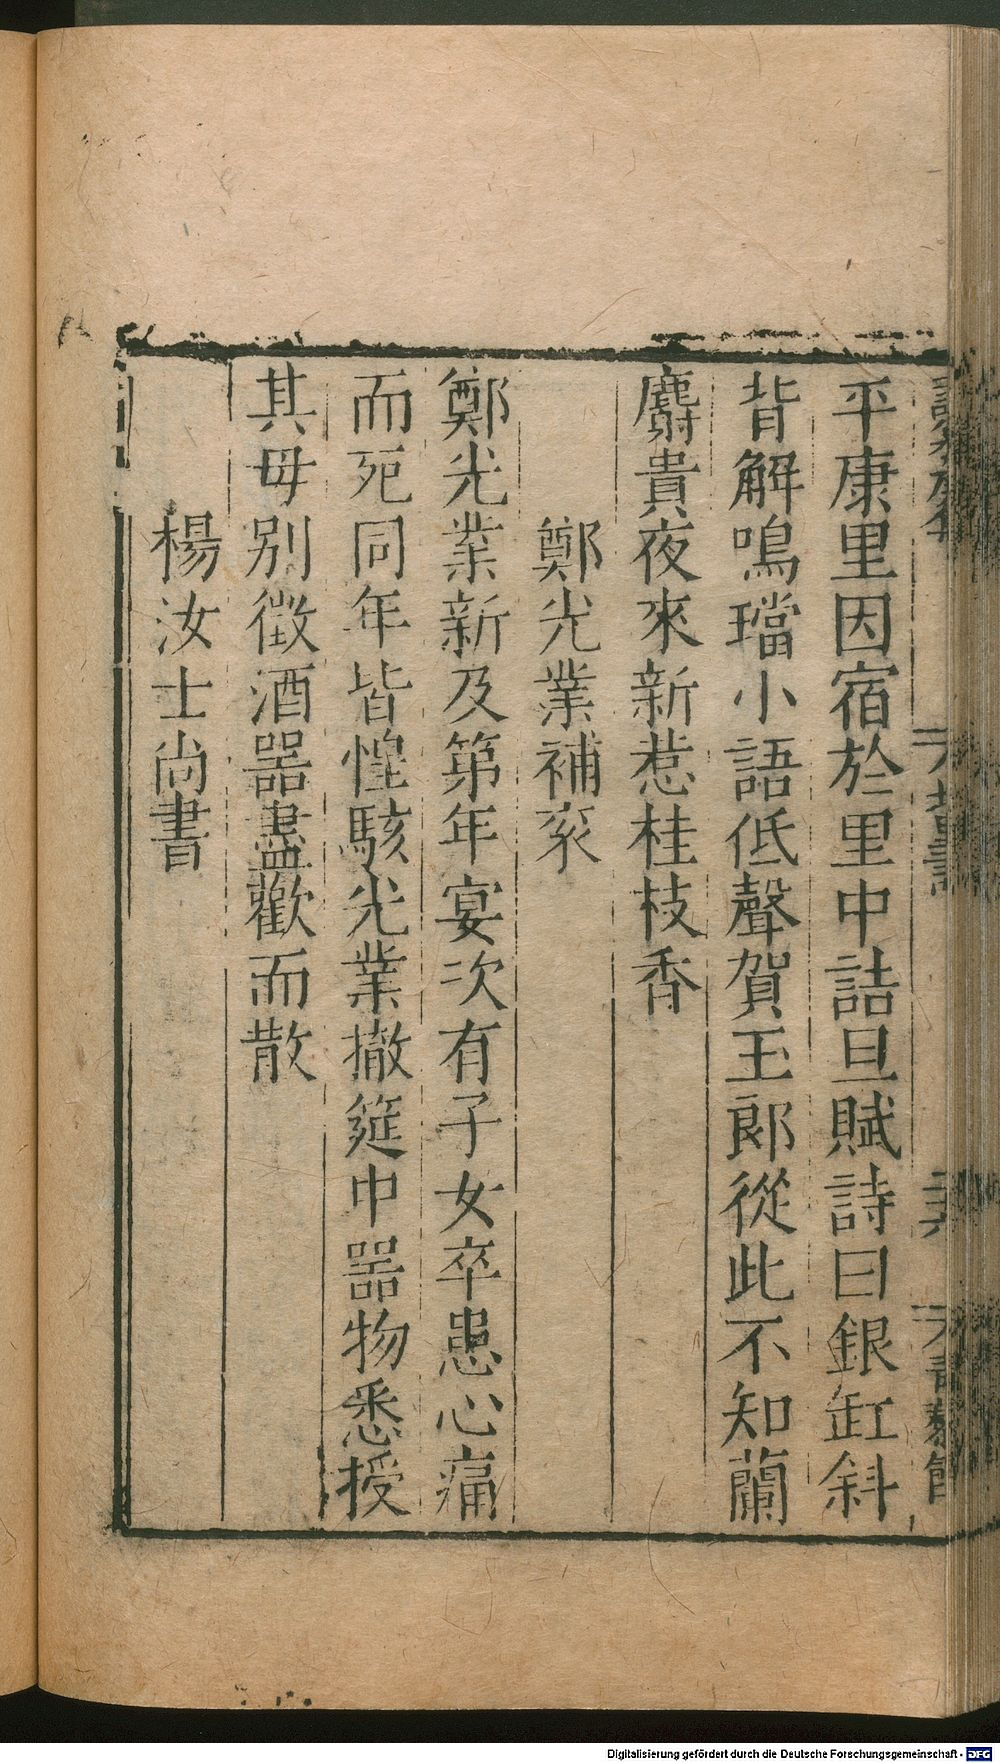 平康里因宿於里中詰旦賦詩曰銀缸斜
背解鳴璫小語低聲賀玉郎從此不知蘭
麝貴夜來新惹桂枝香
鄭光業補衮
鄭光業新及第年宴次有子女卒患心痛
而死同年皆惶駭光業撤筵中器物悉授
其母別徵酒器盡歡而散
楊汝士尚書
Digitalisierung gefördert durch die Deutsche Forschungsgemeinschaft - DFG